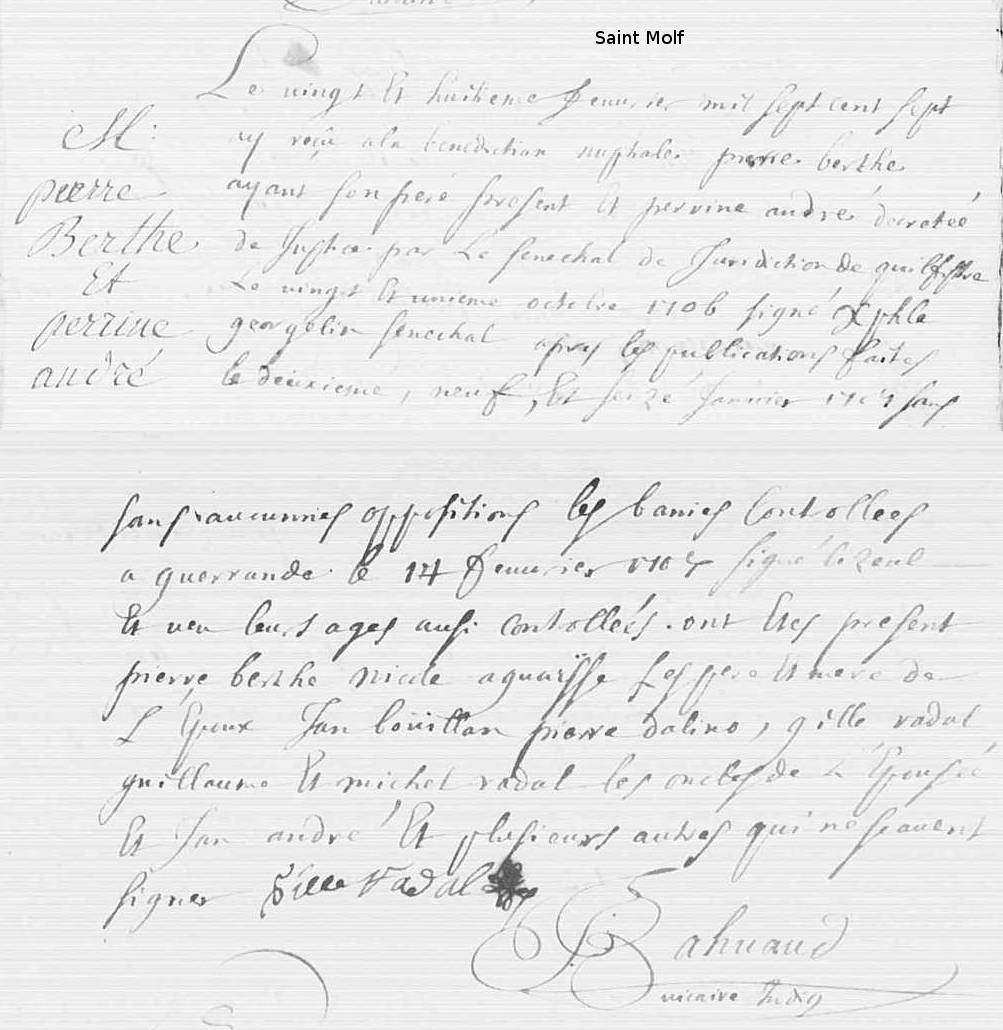 Saint Molf
Le vingt Et huitieme feuurier mil sept cent sept
ay reçu a la benediction nuptiale pierre berthe
ayant son frere present Et perrine andre decretée
de Justice par Le senechal de Jurisdiction de quilfistre
Le vingt Et unieme octobre 1706 signé
georgelin senechal apres les publications faites
le deuxieme, neuf, Et seize Janvier 1707 sans
M:
pierre
Berthe
Et
perrine
andré
sans aucunnes oppositions les banies Controllees
a guerrande le 14 feuurier 1707 signé le
Et veu leurs ages ausi controllés. ont Etes present
pierre berthe nicole les pere Et mere de
L'Epoux Jan bouillan pierre dalino, gille vadal
guillaume Et michel vadal les oncles de L'Epousée
Et Jan andre Et plusieurs autres qui ne scauent
signer Gille Vadal
Bahuaud
vicaire Indig